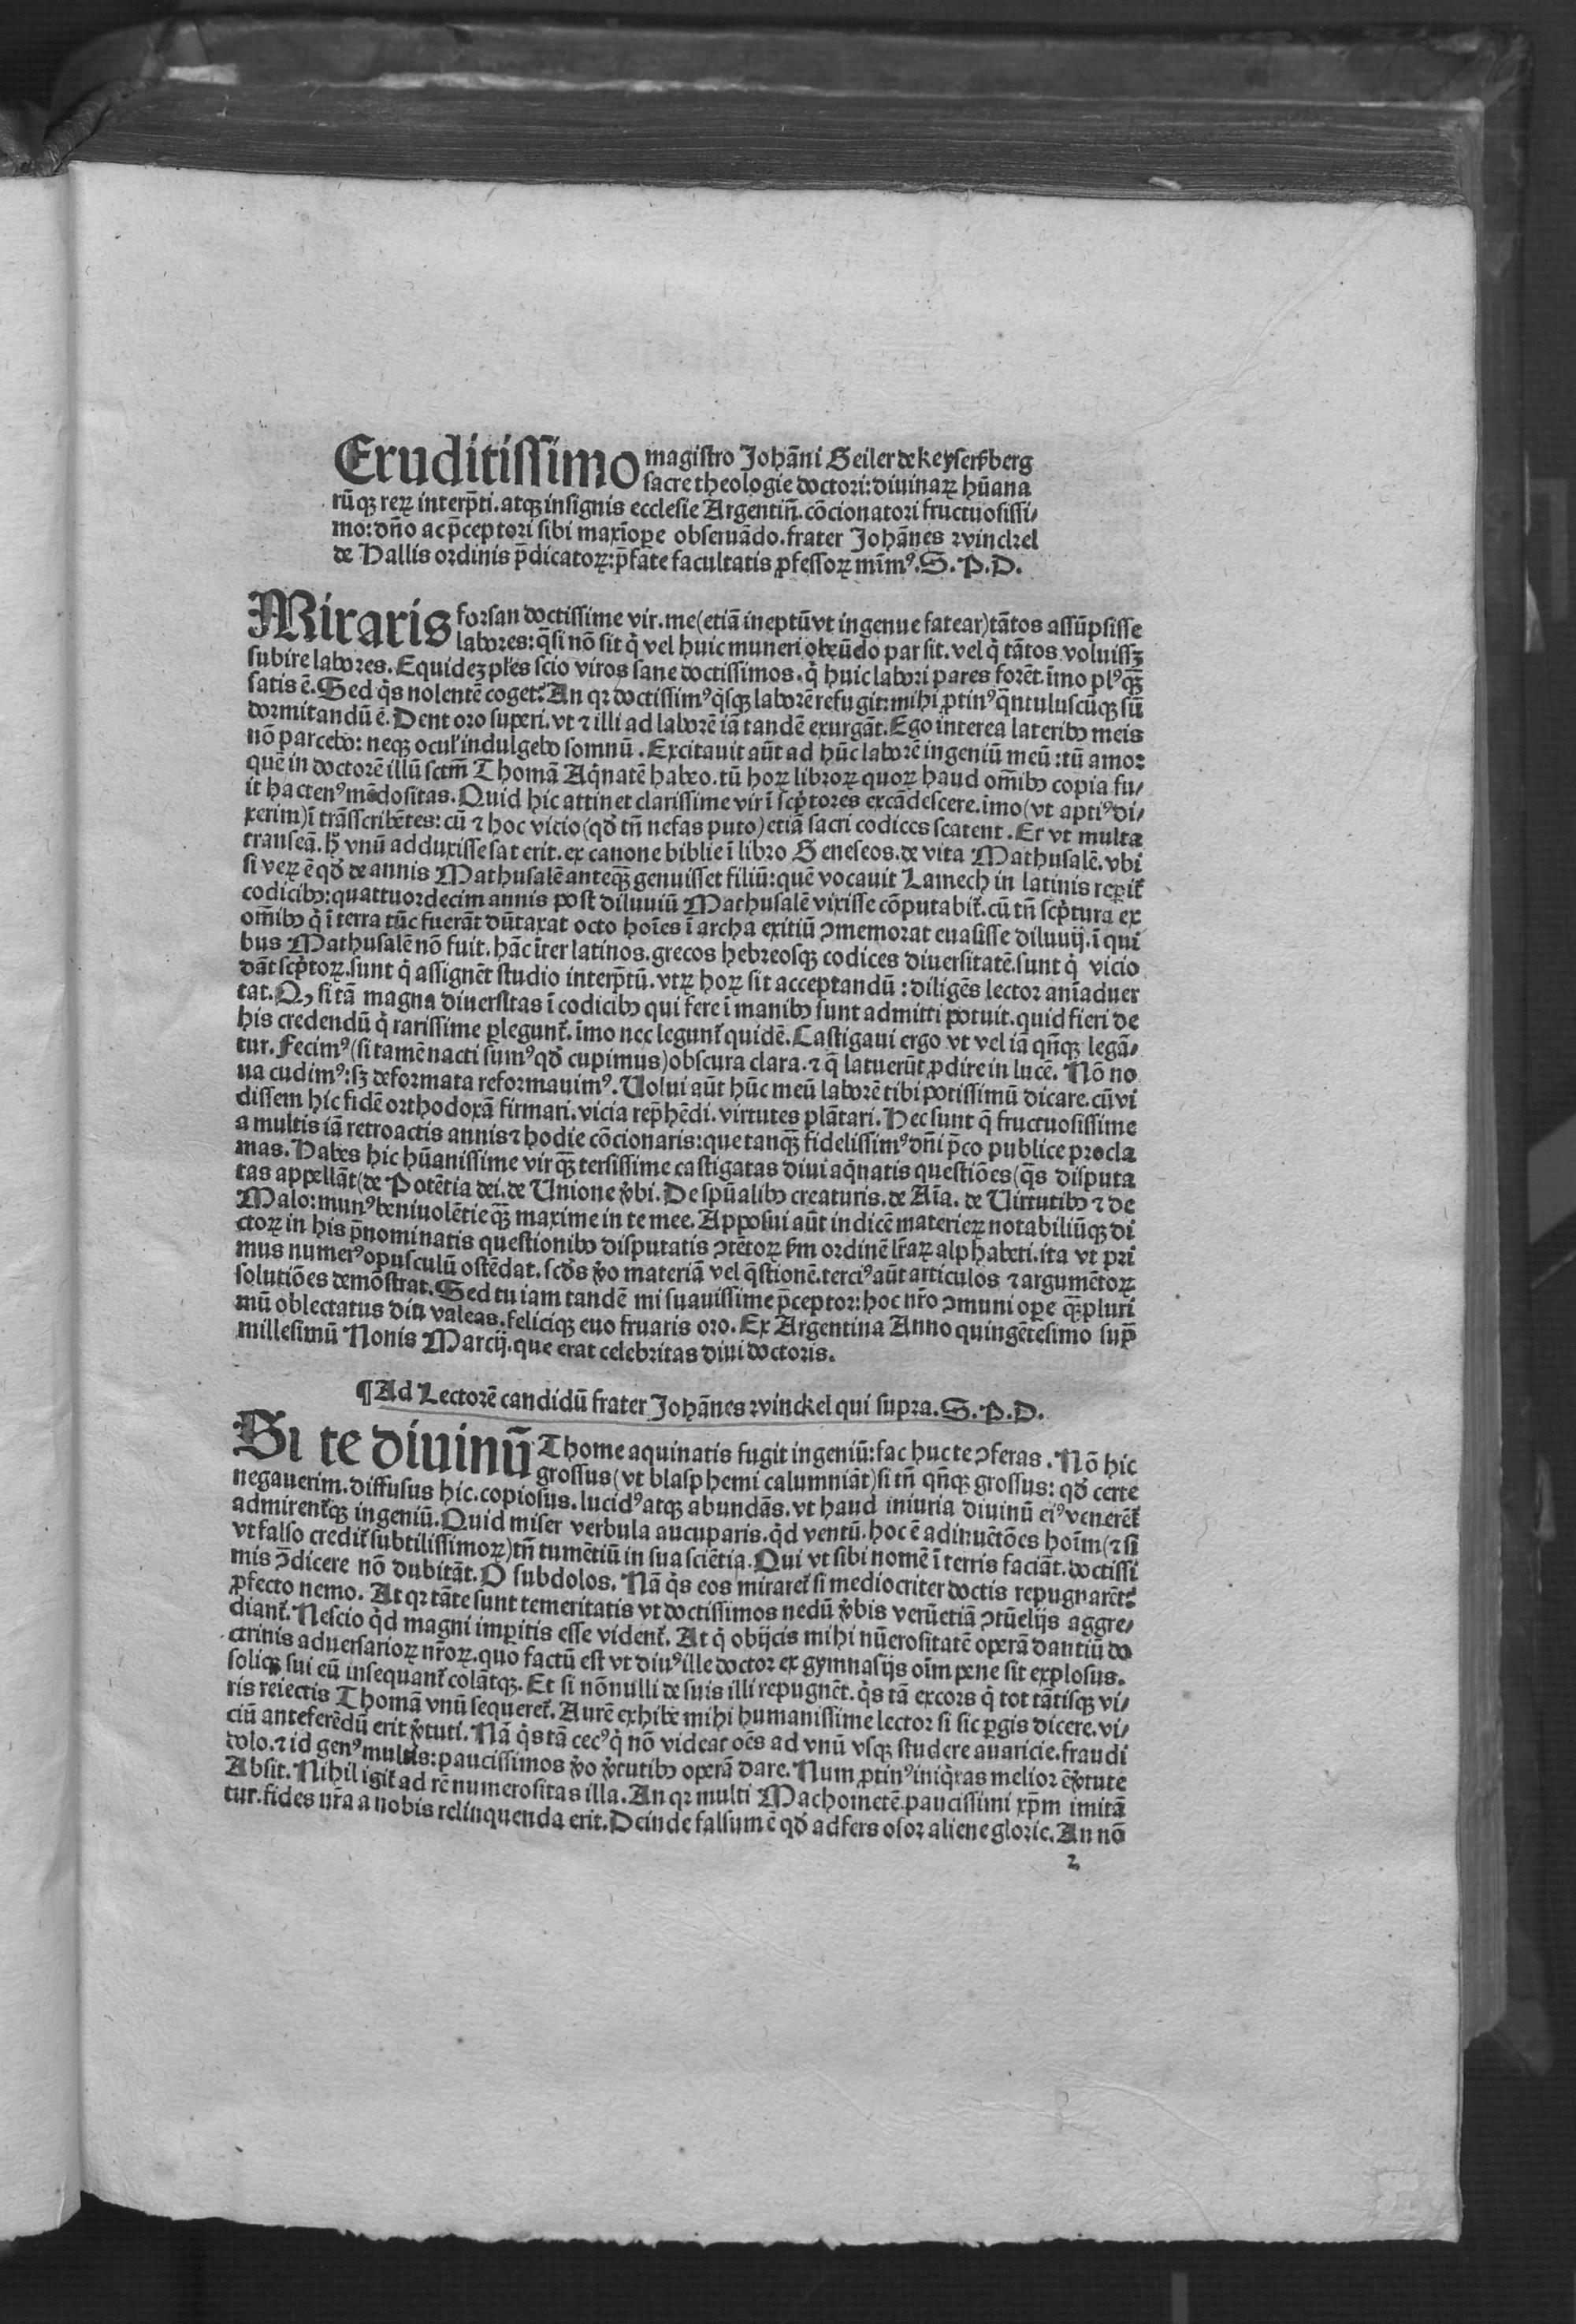 Eruditissimo magistro Johāni Geiler de keyserſberg
sacre theologie doctori: diuinaꝝ hūana
rūqꝫ reꝝ interp̄ti. atqꝫ insignis ecclesie Argentiñ. cōcionatori fructuosissi/
mo: dño ac p̄ceptori sibi maxīope obseruādo. frater Johānes winckel
de Hallis ordinis p̄dicatoꝝ: p̄fate facultatis ꝓfessoꝝ mīmꝰ. S. P. D.
Miraris forsan doctissime vir. me (etiā ineptū vt ingenue fatear) tātos assūpsisse
labores: q̄si nō sit q̇ vel huic muneri obeūdo par sit. vel q̇ tātos voluissꝫ
subire labores. Equidez pl̄es scio viros sane doctissimos. q̇ huic labori pares forēt. īmo plꝰqꝫ̄
satis ē. Sed q̇s nolentē coget? An qꝛ doctissimꝰ q̇sqꝫ laborē refugit: mihi ꝓtinꝰ q̄ntuluscūqꝫ sū
dormitandū ē. Dent oro superi. vt ⁊ illi ad laborē iā tandē exurgāt. Ego interea lateribꝰ meis
nō parcebo: neqꝫ ocul' indulgebo somnū. Excitauit aūt ad hūc laborē ingeniū meū: tū amor
quē in doctorē illū sctm̄ Thomā Aq̇natē habeo. tū hoꝝ libroꝝ quoꝝ haud om̄ibꝰ copia fu/
it hactenꝰ mēdositas. Quid hic attinet clarissime vir ī scṗtores excādescere. imo (vt aptiꝰ di/
xerim) ī trāsscribētes: cū ⁊ hoc vicio (qđ tñ nefas puto) etiā sacri codices scatent. Et vt multa
transeā. h̄ vnū adduxisse sat erit. ex canone biblie ī libro Geneseos. de vita Mathusalē. vbi
si veꝝ ē qđ de annis Mathusalē anteqꝫ̄ genuisset filiū: quē vocauit Lamech in latinis reperit̄
codicibꝰ: quattuordecim annis post diluuiū Mathusalē vixisse cōputabit̄. cū tñ scṗtura ex
om̄ibꝰ q̇ ī terra tūc fuerāt dūtaxat octo hoīes ī archa exitiū ꝯmemorat euasisse diluuij. ī qui
bus Mathusalē nō fuit. hāc īter latinos. grecos hebreosqꝫ codices diuersitatē. sunt q̇ vicio
dāt scṗtoꝝ. sunt q̇ assignēt studio interp̄tū. vtꝝ hoꝝ sit acceptandū: diligēs lector aīaduer
tat. Qꝫ si tā magna diuersitas ī codicibꝰ qui fere ī manibꝰ sunt admitti potuit. quid fieri de
his credendū q̇ rarissime ꝑlegunt̄. īmo nec legunt̄ quidē. Castigaui ergo vt vel iā qn̄qꝫ legā/
tur. Fecimꝰ (si tamē nacti sumꝰ qđ cupimus) obscura clara. ⁊ q̄ latuerūt ꝓdire in lucē. Nō no
ua cudimꝰ: sꝫ deformata reformauimꝰ. Uolui aūt hūc meū laborē tibi potissimū dicare. cū vi
dissem hic fidē orthodoxā firmari. vicia rep̄hēdi. virtutes plātari. Hec sunt q̄ fructuosissime
a multis iā retroactis annis ⁊ hodie cōcionaris: que tanqꝫ̄ fidelissimꝰ dñi p̄co publice procla
mas. Habes hic hūanissime vir qꝫ̄ tersissime castigatas diui aq̇natis questiōes (q̄s disputa
tas appellāt (de Potētia dei. de Unione v̇bi. De spūalibꝰ creaturis. de Aīa. de Uirtutibꝰ ⁊ de
Malo: munꝰ beniuolētie qꝫ̄ maxime in te mee. Apposui aūt indicē materieꝝ notabiliūqꝫ di
ctoꝝ in his p̄nominatis questionibꝰ disputatis ꝯtētoꝝ ẜm ordinē lr̄aꝝ alphabeti. ita vt pri
mus numerꝰ opusculū ostēdat. scđs v̇o materiā vel q̄stionē. terciꝰ aūt articulos ⁊ argumētoꝝ
solutiōes demōstrat. Sed tu iam tandē mi suauissime p̄ceptor: hoc nr̄o ꝯmuni ope qꝫ̄pluri
mū oblectatus diu valeas. feliciqꝫ euo fruaris oro. Ex Argentina Anno quingētesimo sup̄
millesimū Nonis Marcij. que erat celebritas diui doctoris.
¶Ad Lectorē candidū frater Johānes winckel qui supra. S. P. D.
Si te diuinū Thome aquinatis fugit ingeniū: fac huc te ꝯferas. Nō hic
grossus (vt blasphemi calumniāt) si tñ qn̄qꝫ grossus: qđ certe
negauerim. diffusus hic. copiosus. lucidꝰ atqꝫ abundās. vt haud iniuria diuinū eiꝰ venerēt̄
admirent̄qꝫ ingeniū. Quid miser verbula aucuparis. q̇d ventū. hoc ē adinuētōes hoīm (⁊ si
vt falso credit̄ subtilissimoꝝ) tñ tumētiū in sua sciētia. Qui vt sibi nomē ī terris faciāt. doctissi
mis ꝯ̄dicere nō dubitāt. O subdolos. Nā q̇s eos miraret̄ si mediocriter doctis repugnarēt?
ꝓfecto nemo. At qꝛ tāte sunt temeritatis vt doctissimos nedū v̇bis verūetiā ꝯtūelijs aggre/
diant̄. Nescio q̇d magni imꝑitis esse vident̄. At q̇ obijcis mihi nūerositatē operā dantiū do
ctrinis aduersarioꝝ nr̄oꝝ. quo factū est vt diuꝰ ille doctor ex gymnasijs oīm pene sit explosus.
soliqꝫ sui eū insequant̄ colātqꝫ. Et si nōnulli de suis illi repugnēt. q̇s tā excors q̇ tot tātisqꝫ vi/
ris reiectis Thomā vnū sequeret̄. Aurē exhibe mihi humanissime lector si sic ꝑgis dicere. vi/
ciū anteferēdū erit v̇tuti. Nā q̇s tā cecꝰ q̇ nō videat oēs ad vnū vsqꝫ studere auaricie. fraudi
dolo. ⁊ id genꝰ multis: paucissimos v̇o v̇tutibꝰ operā dare. Num ꝓtinꝰ iniq̇tas melior ē v̇tute
Absit. Nihil igit̄ ad rē numerositas illa. An qꝛ multi Machometē. paucissimi xp̄m imitā
tur. fides vra a nobis relinquenda erit. Deinde falsum ē qđ adfers osor aliene glorie. An nō
2